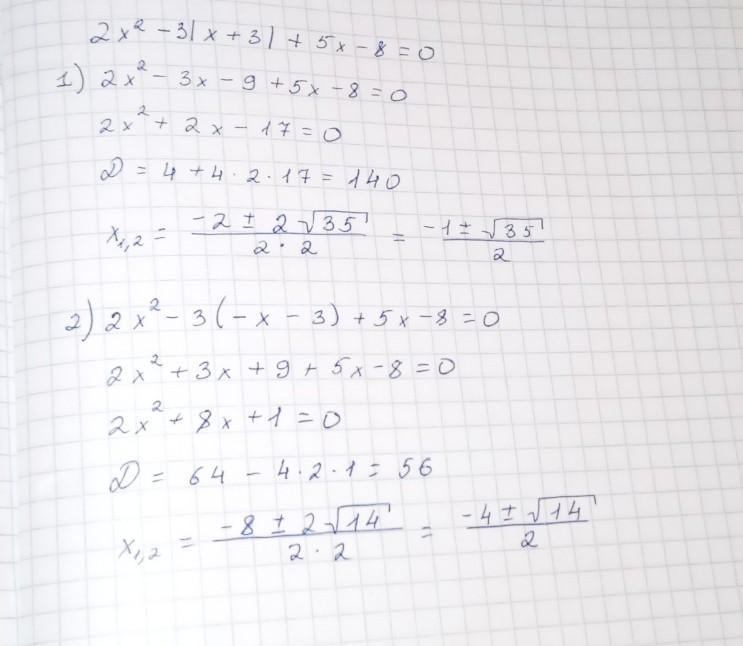 2x² - 3|x + 3| + 5x - 8 = 0
1) 2x² - 3x - 9 + 5x - 8 = 0
2x² + 2x - 17 = 0
D = 4 + 4 · 2 · 17 = 140
x₁,₂ = (-2 ± 2√35)/(2 · 2) = (-1 ± √35)/2
2) 2x² - 3(-x - 3) + 5x - 8 = 0
2x² + 3x + 9 + 5x - 8 = 0
2x² + 8x + 1 = 0
D = 64 - 4 · 2 · 1 = 56
x₁,₂ = (-8 ± 2√14)/(2 · 2) = (-4 ± √14)/2